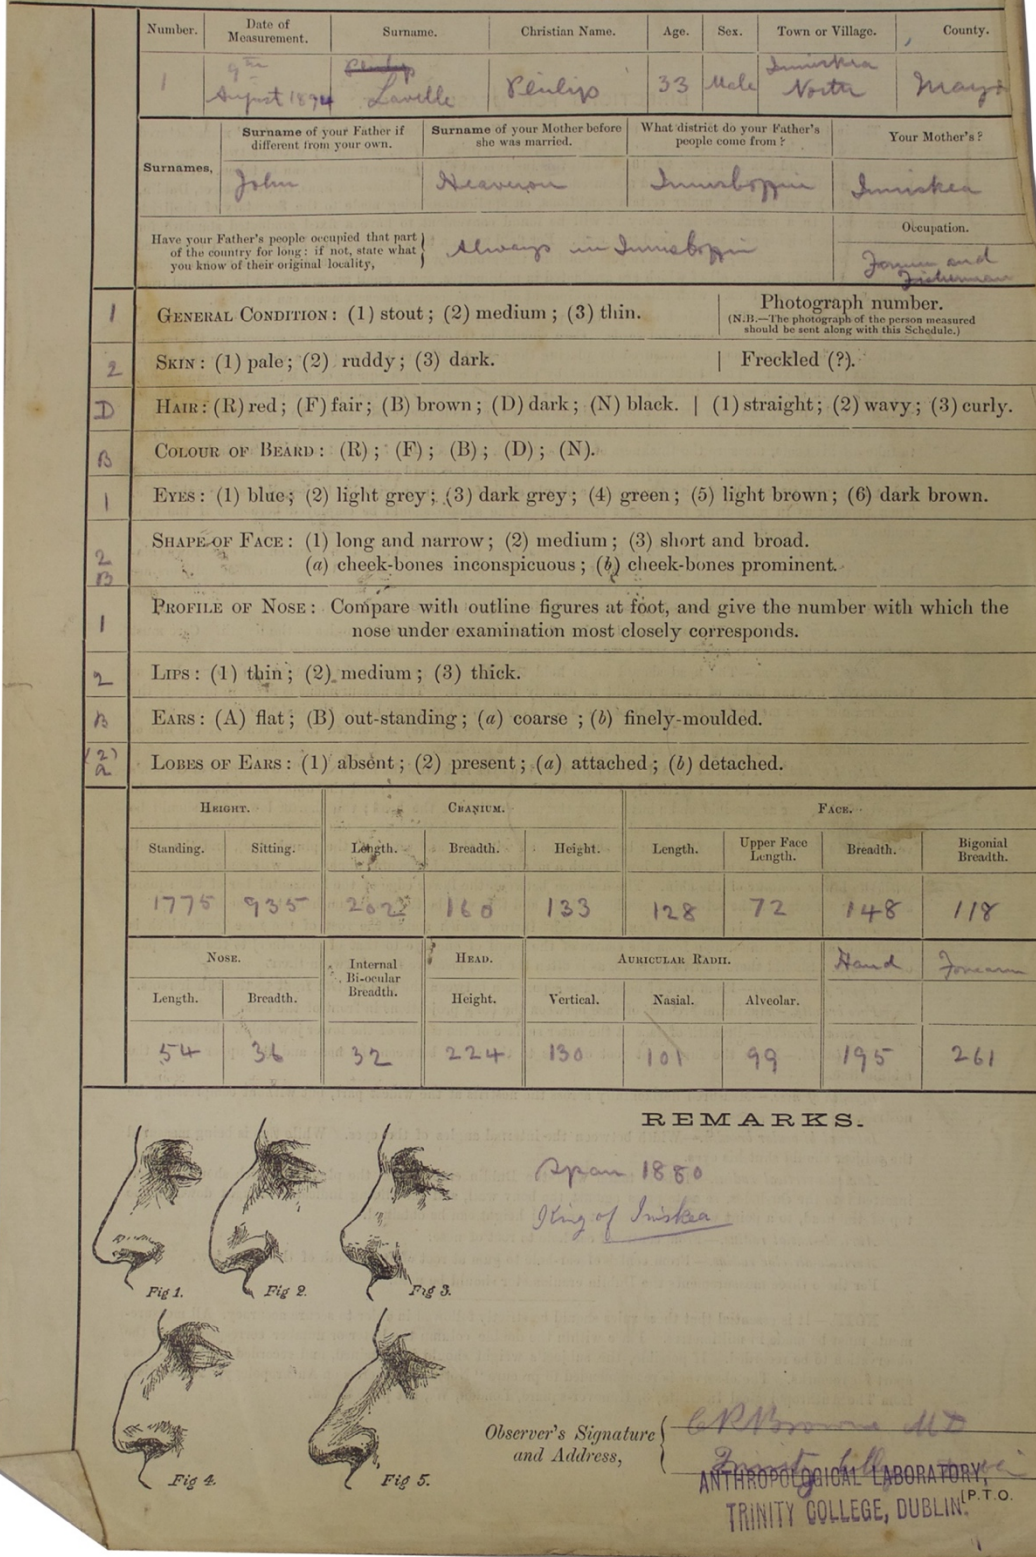 Number. Date of Measurement. Surname. Christian Name. Age. Sex. Town or Village. County.
1 9th August 1894 Philip Lavelle Philip 33 Male Inniskea North Mayo
Surnames,
Surname of your Father if different from your own. Surname of your Mother before she was married. What district do your Father's people come from? Your Mother's?
John Heaveron Innisboffin Inniskea
Have your Father's people occupied that part of the country for long: if not, state what you know of their original locality,
Always in Innisboffin
Occupation.
Farmer and Fisherman
1 GENERAL CONDITION: (1) stout; (2) medium; (3) thin. Photograph number.
(N.B.—The photograph of the person measured should be sent along with this Schedule.)
2 SKIN: (1) pale; (2) ruddy; (3) dark. | Freckled (?).
D HAIR: (R) red; (F) fair; (B) brown; (D) dark; (N) black. | (1) straight; (2) wavy; (3) curly.
B COLOUR OF BEARD: (R); (F); (B); (D); (N).
1 EYES: (1) blue; (2) light grey; (3) dark grey; (4) green; (5) light brown; (6) dark brown.
2 SHAPE OF FACE: (1) long and narrow; (2) medium; (3) short and broad.
B (a) cheek-bones inconspicuous; (b) cheek-bones prominent.
1 PROFILE OF NOSE: Compare with outline figures at foot, and give the number with which the
nose under examination most closely corresponds.
2 LIPS: (1) thin; (2) medium; (3) thick.
B EARS: (A) flat; (B) out-standing; (a) coarse; (b) finely-moulded.
(2) a LOBES OF EARS: (1) absent; (2) present; (a) attached; (b) detached.
HEIGHT. CRANIUM. FACE.
Standing. Sitting. Length. Breadth. Height. Length. Upper Face Length. Breadth. Bigonial Breadth.
1775 935 202 160 133 128 72 148 118
NOSE. Internal Bi-ocular Breadth. HEAD. AURICULAR RADII. Hand Forearm
Length. Breadth. Height. Vertical. Nasial. Alveolar.
54 36 32 224 130 101 99 195 261
REMARKS.
Span 1880
King of Iniskea
Fig 1. Fig 2. Fig 3.
Fig 4. Fig 5.
Observer's Signature and Address,
C R Browne MD
Trinity College
ANTHROPOLOGICAL LABORATORY,
TRINITY COLLEGE, DUBLIN.
[P.T.O.